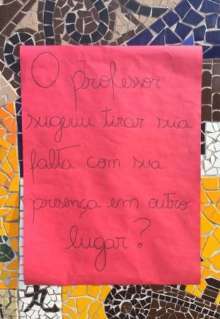 O professor
sugeriu tirar sua
falta com sua
presença em outro
lugar?